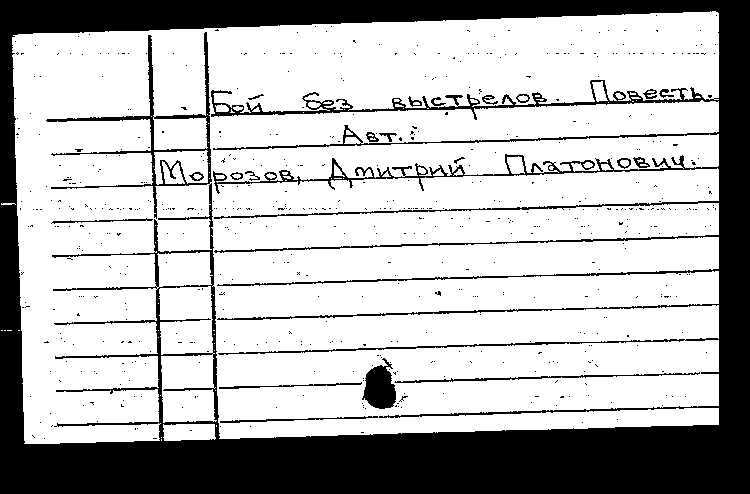 Бой без выстрелов. Повесть.
Авт.:
Морозов, Дмитрий Платонович.